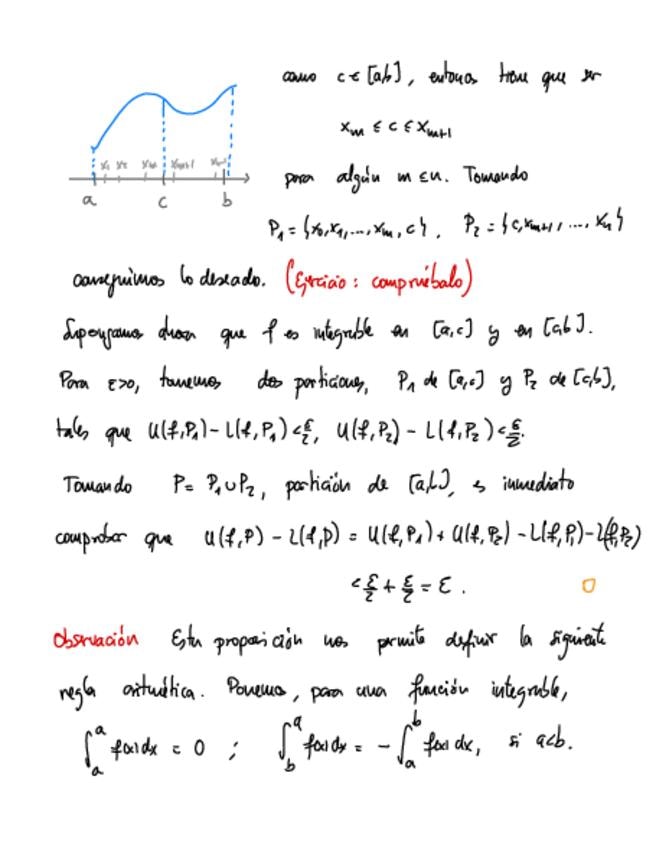 como c ∈ [a,b], entonces tiene que ser
x_m ≤ c ≤ x_{m+1}
para algún m ≤ n. Tomando
P_1 = {x_0, x_1, ..., x_m, c}, P_2 = {c, x_{m+1}, ..., x_n}
x_1 x_2 x_m x_{m+1} x_{n-1}
a c b
conseguimos lo deseado. (Ejercicio: compruébalo)
Supongamos ahora que f es integrable en [a,c] y en [c,b].
Para ε>0, tenemos dos particiones, P_1 de [a,c] y P_2 de [c,b],
tales que U(f,P_1) - L(f,P_1) < ε/2, U(f,P_2) - L(f,P_2) < ε/2.
Tomando P = P_1 ∪ P_2, partición de [a,b], es inmediato
comprobar que U(f,P) - L(f,P) = U(f,P_1) + U(f,P_2) - L(f,P_1) - L(f,P_2)
< ε/2 + ε/2 = ε. □
Observación Esta proposición nos permite definir la siguiente
regla aritmética. Ponemos, para una función integrable,
∫_a^a f(x)dx = 0 ; ∫_b^a f(x)dx = -∫_a^b f(x)dx, si a<b.